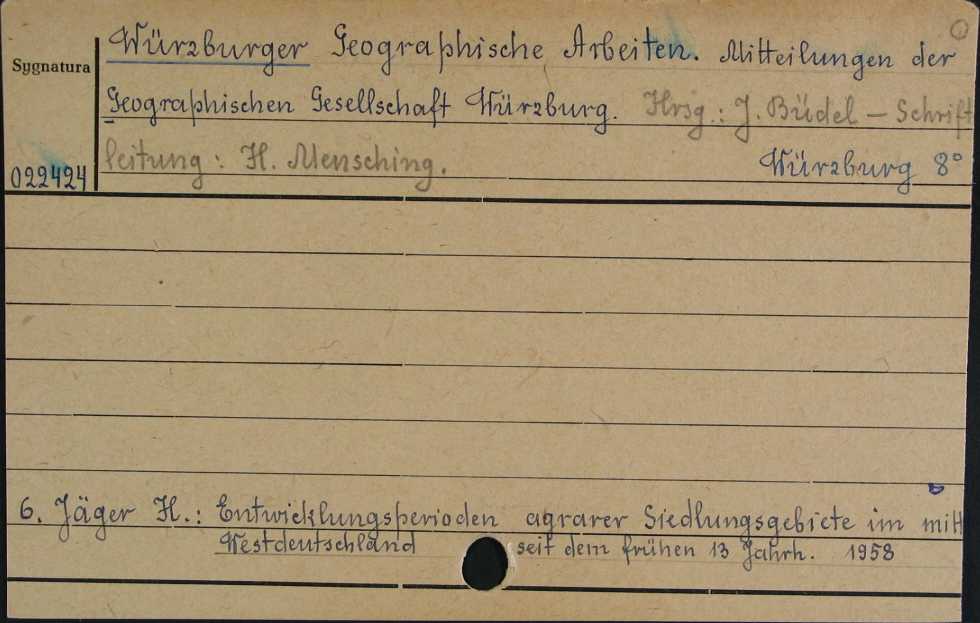 Würzburger Geographische Arbeiten. Mitteilungen der
Sygnatura
Geographischen Gesellschaft Würzburg. Hrsg.: J. Büdel – Schrift
leitung: H. Mensching. Würzburg 8°
022424
6. Jäger H.: Entwicklungsperioden agrarer Siedlungsgebiete im mitt
Westdeutschland seit dem frühen 13 Jahrh. 1958